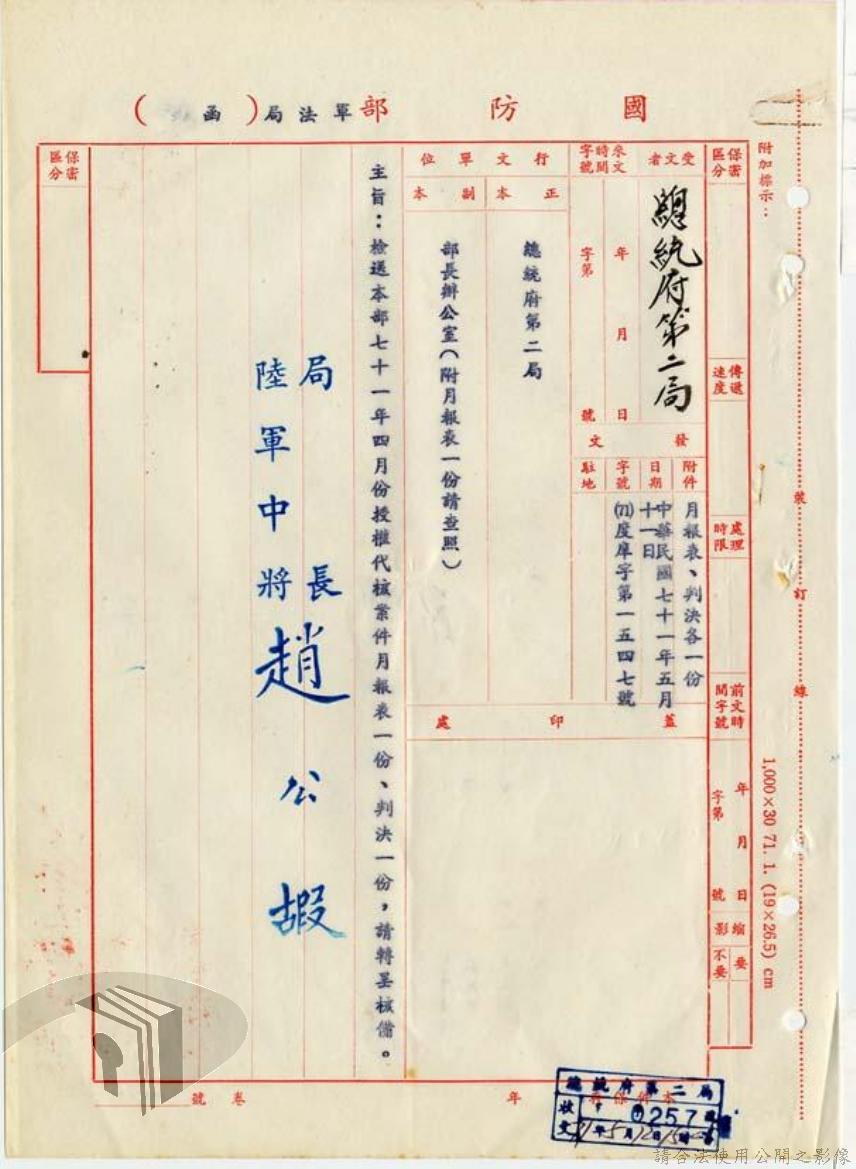 國防部軍法局(函)
附加標示：
裝訂線
1,000×30 71. 1. (19×26.5) cm
保密區分
傳遞速度
處理時限
前文時間字號
年月日
字第號
縮影
要
不要
受文者
總統府第二局
來文時間字號
年月日
字第號
發文
附件
月報表、判決各一份
日期
中華民國七十一年五月十一日
字號
(71)度庠字第一五四七號
駐地
行文單位
正本
總統府第二局
副本
部長辦公室(附月報表一份請查照)
蓋印處
主旨：檢送本部七十一年四月份授權代核案件月報表一份、判決一份，請轉呈核備。
局長
陸軍中將趙公嘏
保密區分
本件保存
年
卷號
總統府第二局
收文
0257號
71年5月12日15時
請合法使用公開之影像